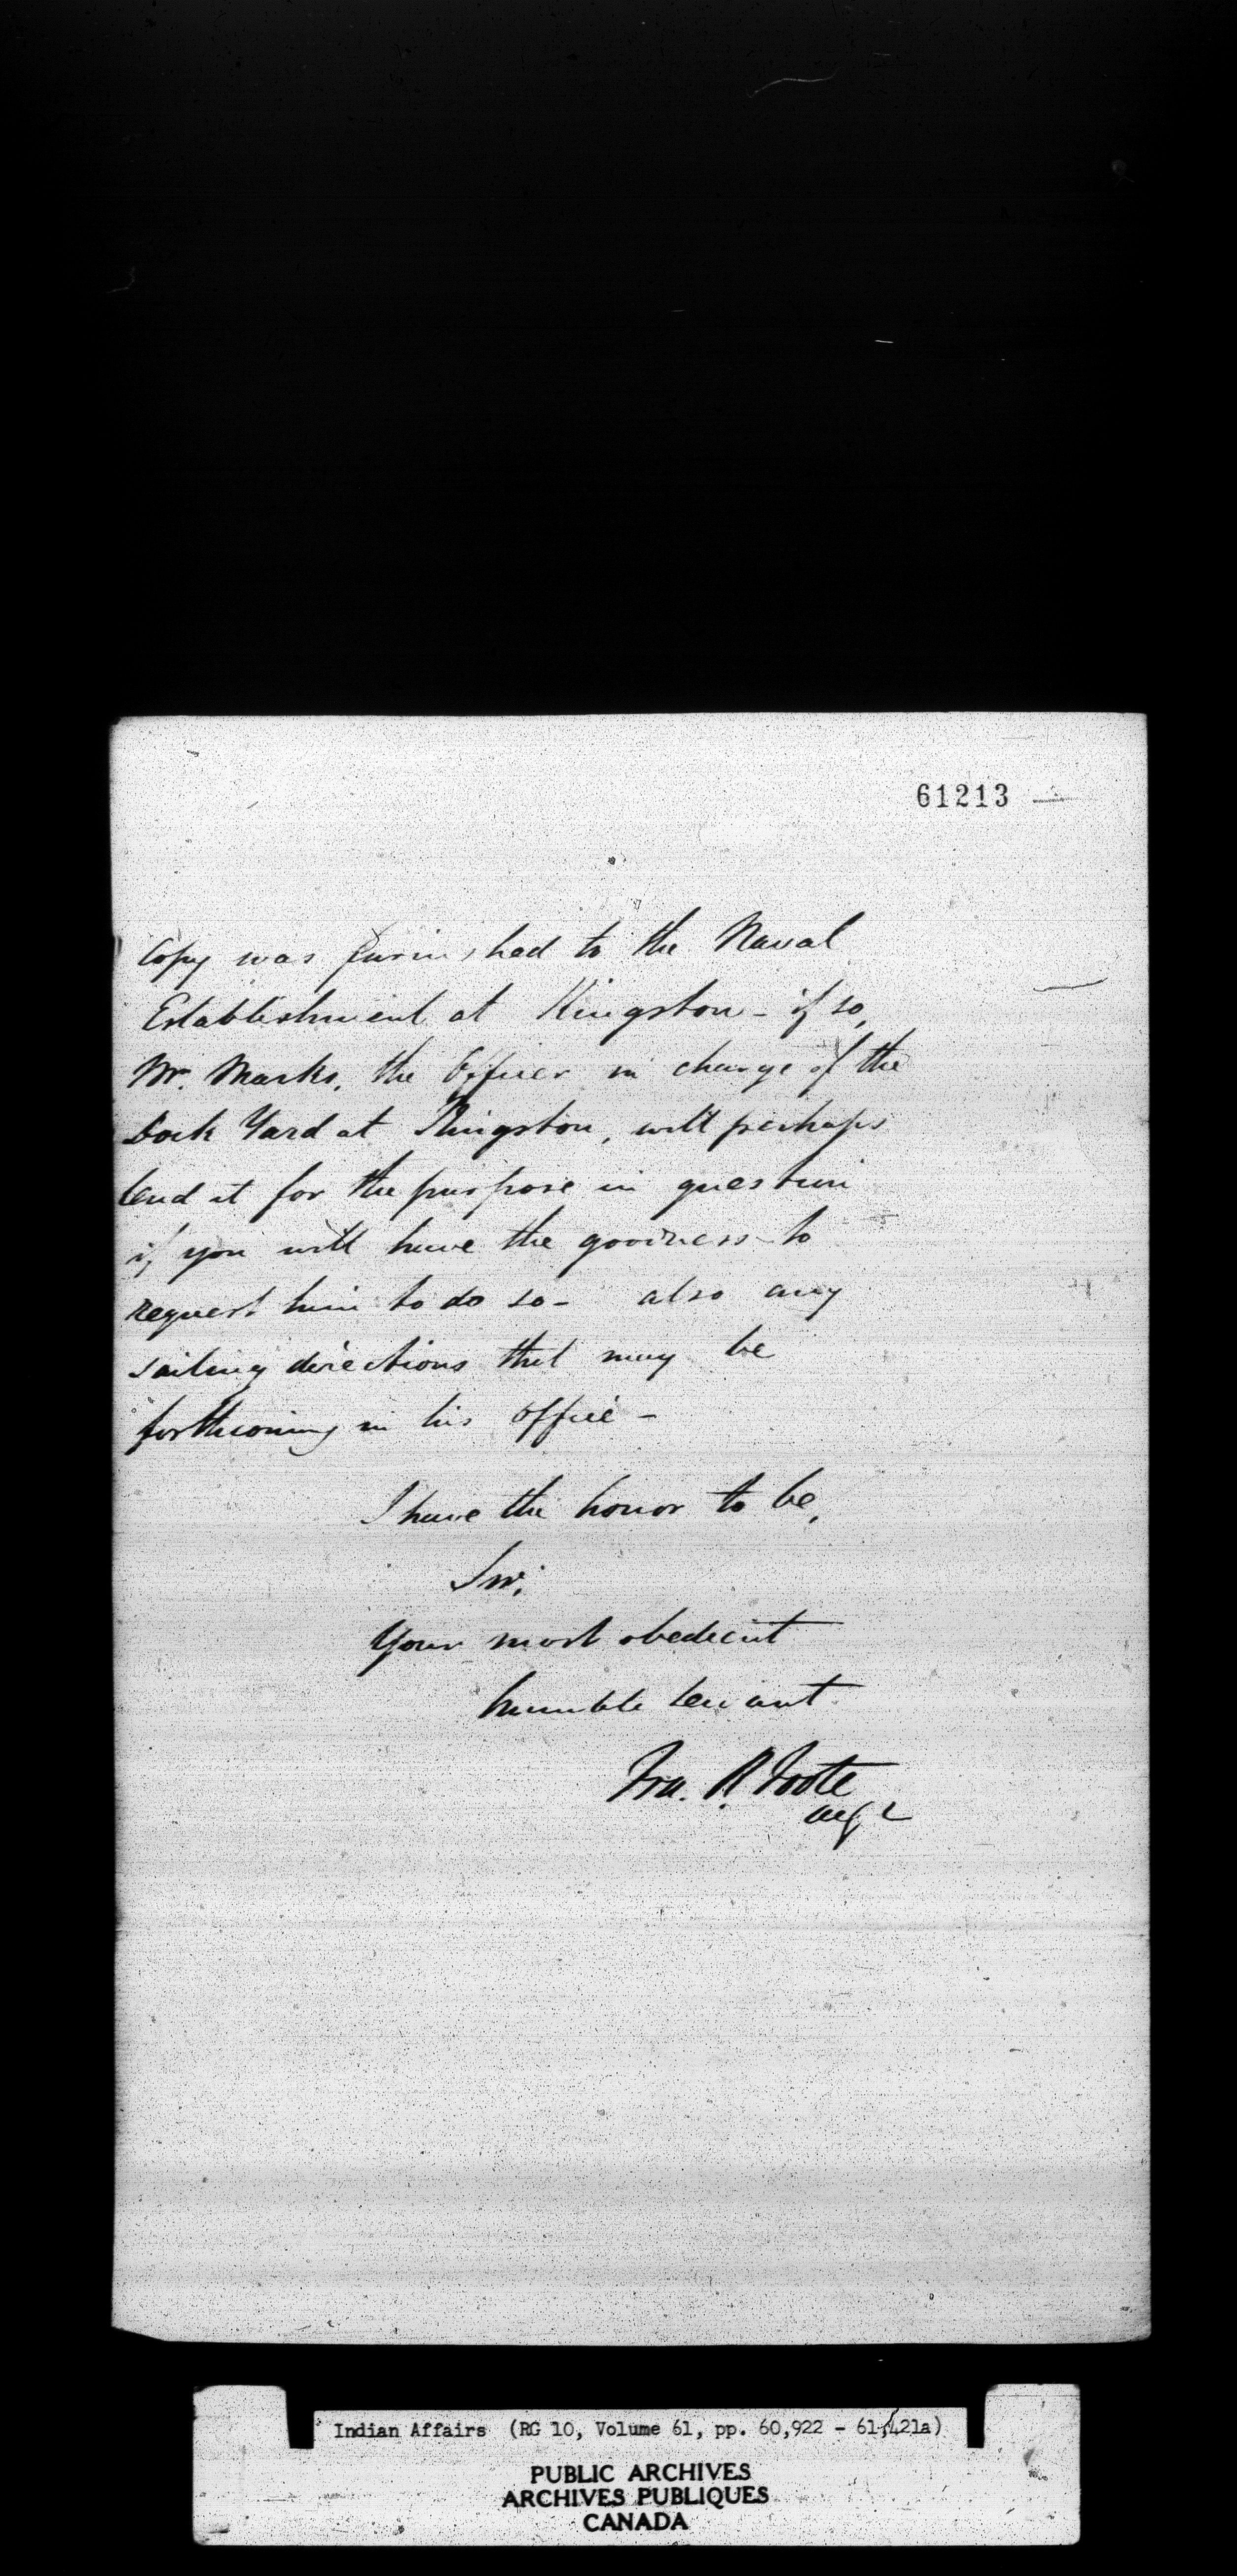 61213
Copy was furnished to the Naval
Establishment at Kingston - if so,
Mr. Marks, the Officer in charge of the
Dock Yard at Kingston, will perhaps
lend it for the purpose in question
if you will have the goodness to
request him to do so - also any
sailing directions that may be
forthcoming in his office -
I have the honor to be,
Sir,
Your most obedient
humble servant
Fra. R. Foote
Indian Affairs (RG 10, Volume 61, pp. 60,922 - 61,421a)
PUBLIC ARCHIVES
ARCHIVES PUBLIQUES
CANADA